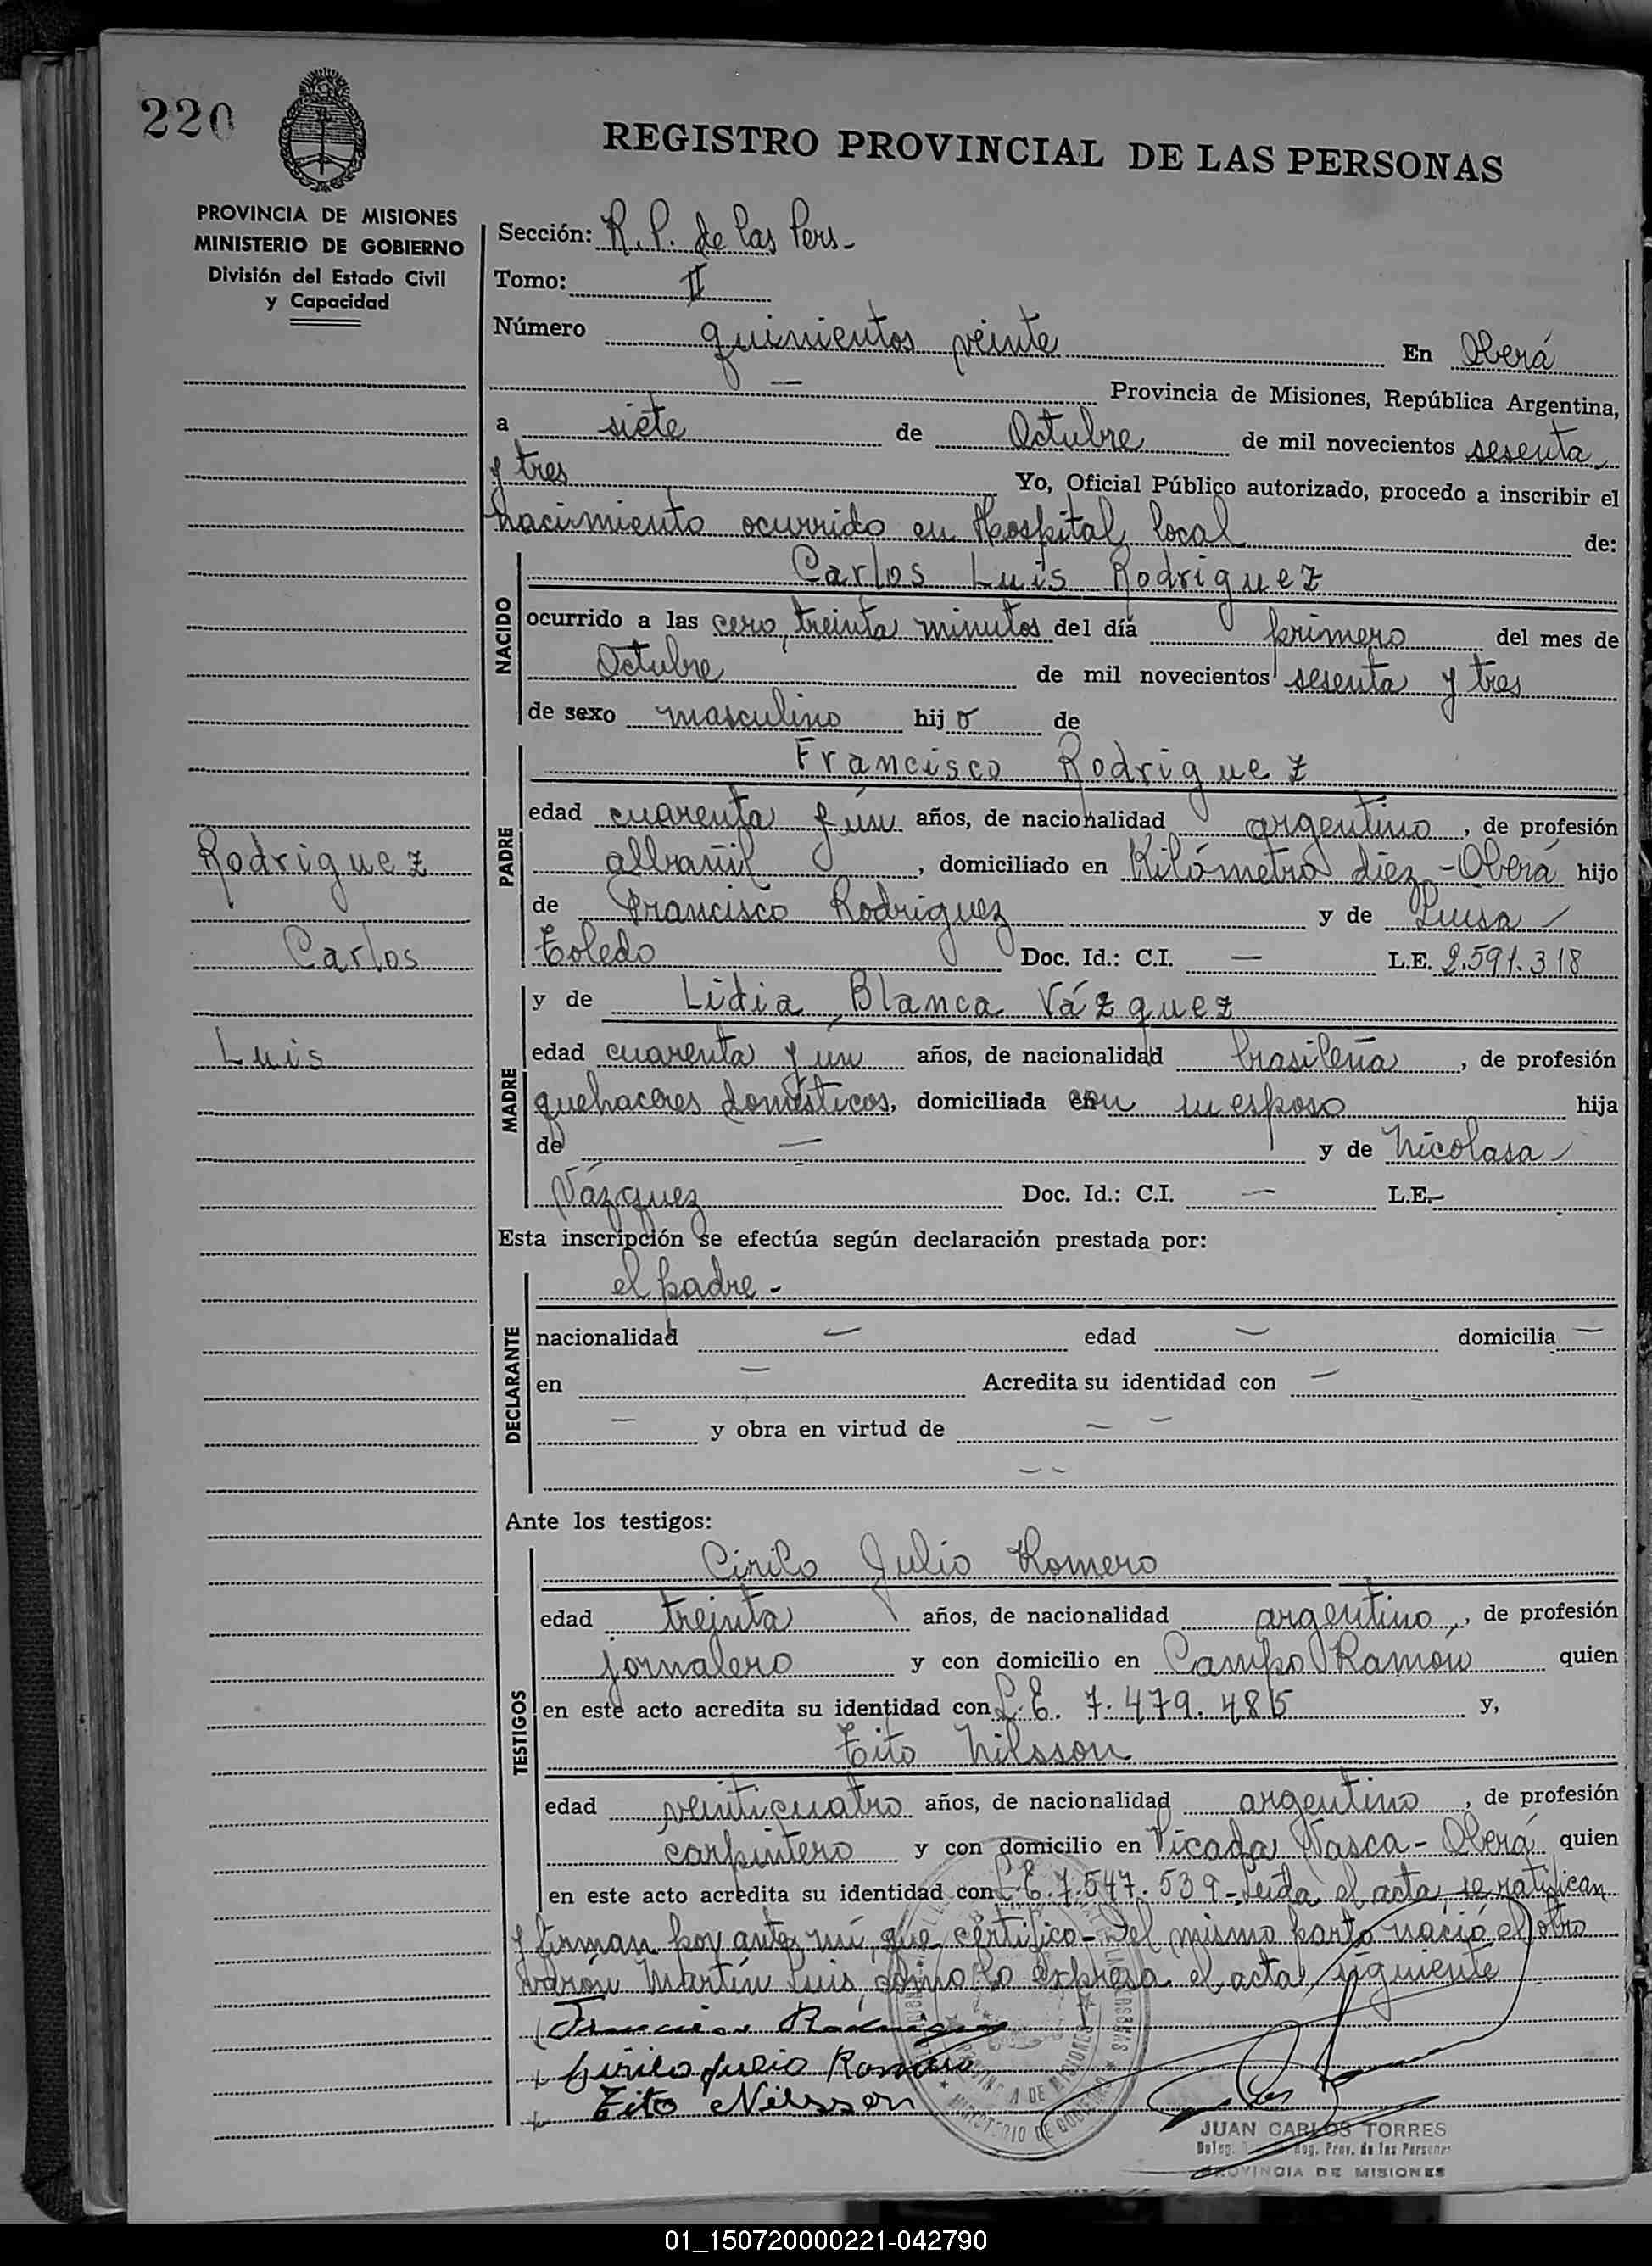 220
REGISTRO PROVINCIAL DE LAS PERSONAS
PROVINCIA DE MISIONES
MINISTERIO DE GOBIERNO
División del Estado Civil
y Capacidad
Sección: R.P. de las Pers-
Tomo: II
Número quinientos veinte En Oberá
— Provincia de Misiones, República Argentina,
a siete de Octubre de mil novecientos sesenta
y tres Yo, Oficial Público autorizado, procedo a inscribir el
nacimiento ocurrido en Hospital local de:
NACIDO
Carlos Luis Rodriguez
ocurrido a las cero, treinta minutos del día primero del mes de
Octubre de mil novecientos sesenta y tres
de sexo masculino hijo de
PADRE
Francisco Rodriguez
edad cuarenta y un años, de nacionalidad argentino, de profesión
albañil, domiciliado en Kilómetro diez - Oberá hijo
de Francisco Rodriguez y de Luisa
Toledo Doc. Id.: C.I. — L.E. 2.591.318
Rodriguez
Carlos
Luis
MADRE
y de Lidia Blanca Vázquez
edad cuarenta y un años, de nacionalidad brasileña, de profesión
quehaceres domésticos, domiciliada con su esposo hija
de — y de Nicolasa
Vázquez Doc. Id.: C.I. — L.E.-
Esta inscripción se efectúa según declaración prestada por:
DECLARANTE
el padre -
nacionalidad — edad — domicilia —
en — Acredita su identidad con —
— y obra en virtud de — —
— —
Ante los testigos:
TESTIGOS
Cirilo Julio Romero
edad treinta años, de nacionalidad argentino, de profesión
jornalero y con domicilio en Campo Ramón quien
en este acto acredita su identidad con L.E. 7.479.485 y,
Tito Nilsson
edad veinticuatro años, de nacionalidad argentino, de profesión
carpintero y con domicilio en Picada Vasca - Oberá quien
en este acto acredita su identidad con L.E. 7.547.539 - Leida el acta, se ratifican
y firman por ante mí, que certifico - Del mismo parto nació el otro
varón Martín Luis, como lo expresa el acta siguiente
Francisco Rodriguez
Cirilo Julio Romero
Tito Nilsson
PROVINCIA DE MISIONES
MINISTERIO DE GOBIERNO
JUAN CARLOS TORRES
Reg. Prov. de las Personas
PROVINCIA DE MISIONES
01_150720000221-042790